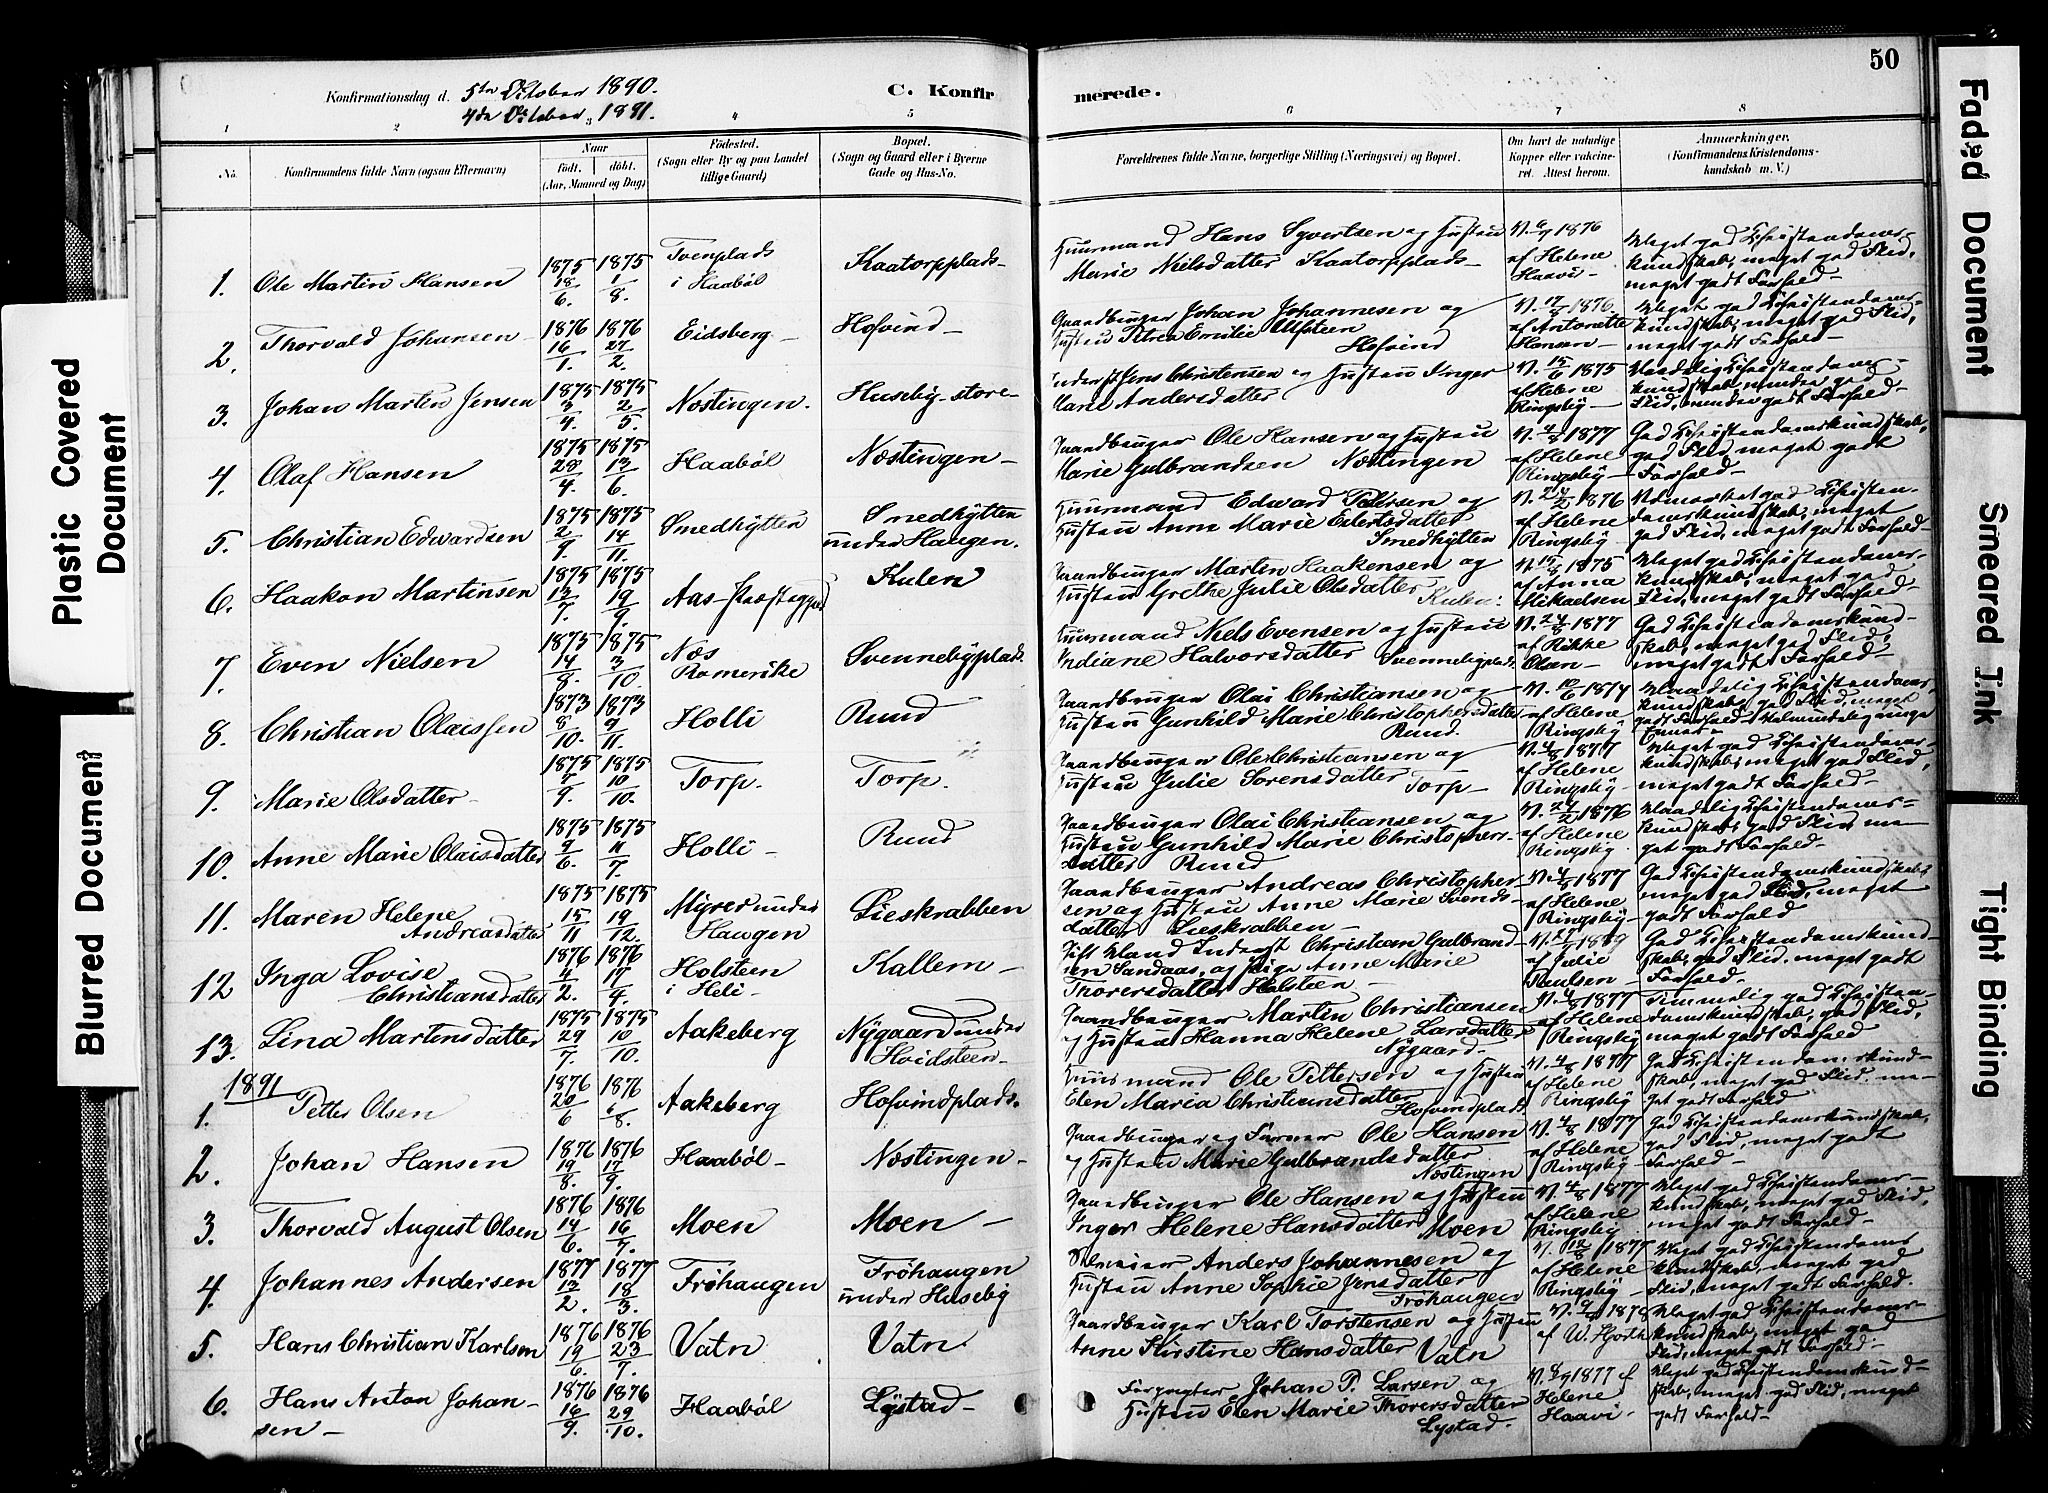 50
Konfirmationsdag d. 5te October 1890.
4de October 1891.
C. Konfir
merede.
1 2 3 4 5 6 7 8
No.
Konfirmandens fulde Navn (ogsaa Efternavn)
Naar
født. døbt.
(Aar, Maaned og Dag)
Fødested.
(Sogn eller By og paa Landet
tillige Gaard)
Bopæl.
(Sogn og Gaard eller i Byerne
Gade og Hus-No.
Forældrenes fulde Navne, borgerlige Stilling (Næringsvei) og Bopæl.
Om havt de naturlige
Kopper eller vakcine-
ret. Attest herom.
Anmærkninger.
(Konfirmandens Kristendoms-
kundskab m. V.)
1. Ole Martin Hansen 1875 18/6. 1875 1/8. Tvenplads i Haabøl Kaatorpplads-
Huusmand Hans Syvertsen og Hustru
Marie Nielsdatter Kaatorpplads-
V. 6/9 1876
af Helene
Haavi-
Meget god Christendoms-
kundskab, meget god Flid,
meget godt Forhold-
2. Thorvald Johansen- 1876 16/1. 1876 27/2. Eidsberg- Hofvind-
Gaardbruger Johan Johannesen og
Hustru Petrea Emilie Ulfsteen
Hofvind
V. 17/8 1876
af Antonette
Hansen-
Meget god Christendoms-
kundskab, meget god Flid,
meget godt Forhold-
3. Johan Martin Jensen 1875 3/4. 1875 2/5. Næstingen. Huseby-store-
Inderst Jens Christensen og Hustru Inger
Marie Andersdatter
V. 15/6 1875
af Helene
Ringsby-
Maadelig Christendoms-
kundskab, mindre god
Flid, mindre godt Forhold-
4. Olaf Hansen 1875 28/4. 1875 13/6. Haabøl Næstingen-
Gaardbruger Ole Hansen og Hustru
Marie Gulbrandsen Næstingen
V. 4/8 1877
af Helene
Ringsby-
God Christendomskundskab,
god Flid, meget godt
Forhold-
5. Christian Edwardsen 1875 2/9. 1875 14/11. Smedhytten Smedhytten
under Haugen.
Huusmand Edward Pettersen og
Hustru Anne Marie Eilertsdatter
Smedhytten
V. 24/2 1876
af Helene
Ringsby-
Udmærket god Christen-
domskundskab, meget
god Flid, meget godt Forhold-
6. Haakon Martinsen 1875 13/7. 1875 19/9. Kulen
Gaardbruger Martin Haakensen og
Hustru Grethe Julie Olsdatter Kulen.
V. 15/8 1875
af Anna
Mikaelsen
Meget god Christendoms-
kundskab, meget god
Flid, meget godt Forhold-
7. Even Nielsen 1875 14/8. 1875 3/10. Næs
Romerike Svennebyplads.
Huusmand Niels Evensen og Hustru
Indiane Halvorsdatter Svennebyplads.
V. 24/8 1877
af Rikke
Olsen-
God Christendomskund-
skab, meget god Flid,
meget godt Forhold-
8. Christian Olaissen 1873 8/10. 1873 9/11. Holli Ruud
Gaardbruger Olai Christiansen og
Hustru Gunhild Marie Christophersdatter
Ruud.
V. 10/6 1874
af Helene
Ringsby
Maadelig Christendoms-
kundskab, god Flid, meget
godt Forhold.
9. Marie Olsdatter- 1875 7/9. 1875 10/10. Torp. Torp.
Gaardbruger Ole Christiansen og
Hustru Julie Sørensdatter Torp-
V. 4/8 1877
af Helene
Ringsby-
Meget god Christendoms-
kundskab, meget god Flid,
meget godt Forhold-
10. Anne Marie Olaisdatter 1875 9/6. 1875 11/7. Holli- Ruud
Gaardbruger Olai Christiansen og
Hustru Gunhild Marie Christophers-
datter Ruud
V. 24/2 1876
af Helene
Ringsby.
Maadelig Christendoms-
kundskab, god Flid, me-
get godt Forhold-
11. Maren Helene
Andreasdatter 1875 15/11 1875 19/12. Myrer under
Haugen Lieskrabben
Gaardbruger Andreas Christopher-
sen og Hustru Anne Marie Svends-
datter Lieskrabben-
V. 4/8 1877
af Helene
Ringsby-
God Christendomskundskab,
meget god Flid, meget
godt Forhold
12 Inga Lovise
Christiansdatter 1876 4/2. 1876 17/4. Holsteen
i Heli- Kallem-
Gift Mand Inderst Christian Gulbrand-
sen Sandaas, og Pige Anne Marie
Thorersdatter Holsteen-
af Julie
Paulsen-
God Christendomskund-
skab, god Flid, meget godt
Forhold-
13. Lina Martinsdatter 1875 29/7. 1875 10/10. Aakeberg Nygaard under
Hvidsteen-
Gaardbruger Martin Christiansen
og Hustru Hanna Helene Larsdatter
Nygaard-
V. 4/8 1877
af Helene
Ringsby
Temmelig god Christen-
domskundskab, god Flid,
meget godt Forhold
1891
1. Petter Olsen 1876 20/6 1876 6/8. Aakeberg Hofvindplads.
Huusmand Ole Pettersen og Hustru
Elen Maria Christiansdatter
Hofvindplads
V. 4/8 1877
af Helene
Ringsby
God Christendomskund-
skab, meget god Flid, me-
get godt Forhold
2. Johan Hansen 1876 19/8. 1876 17/9. Haabøl- Næstingen-
Gaardbruger og Farmer Ole Hansen
og Hustru Marie Gulbrandsdatter
Næstingen
V. 4/8 1877
af Helene
Ringsby
God Christendomskundskab,
god Flid, meget godt
Forhold-
3. Thorvald August Olsen 1876 14/6. 1876 16/7. Moen Moen-
Gaardbruger Ole Hansen og Hustru
Inger Helene Hansdatter Moen
V. 4/8 1877
af Helene
Ringsby
Meget god Christendoms-
kundskab, meget god Flid,
meget godt Forhold-
4. Johannes Andersen 1877 13/2. 1877 18/3. Frøhaugen Frøhaugen
under Huseby
Anders Johannesen og
Hustru Anne Sophie Jensdatter
Frøhaugen
V. 12/8 1877
af Helene
Ringsby-
Meget god Christendoms
kundskab, meget god
Flid, meget godt Forhold.
5. Hans Christian Karlsen 1876 19/6. 1876 23/7. Vatn Vatn
Gaardbruger Karl Torstensen og Hustru
Anne Kirstine Hansdatter Vatn
af W. Hjorth
Meget god Christendoms-
kundskab, meget god
Flid, meget godt Forhold-
6. Hans Anton Johan-
sen- 1876 16/9. 1876 29/10. Haabøl Lystad-
Forpagter Johan P. Larsen og
Hustru Elen Marie Thorersdatter
Lystad.
V. 6/9 1877 af
Helene
Haavi-
Meget god Christendomskund-
skab, meget god Flid, meget
godt Forhold-
Plastic Covered
Document
Blurred Document
Faded Document
Smeared Ink
Tight Binding